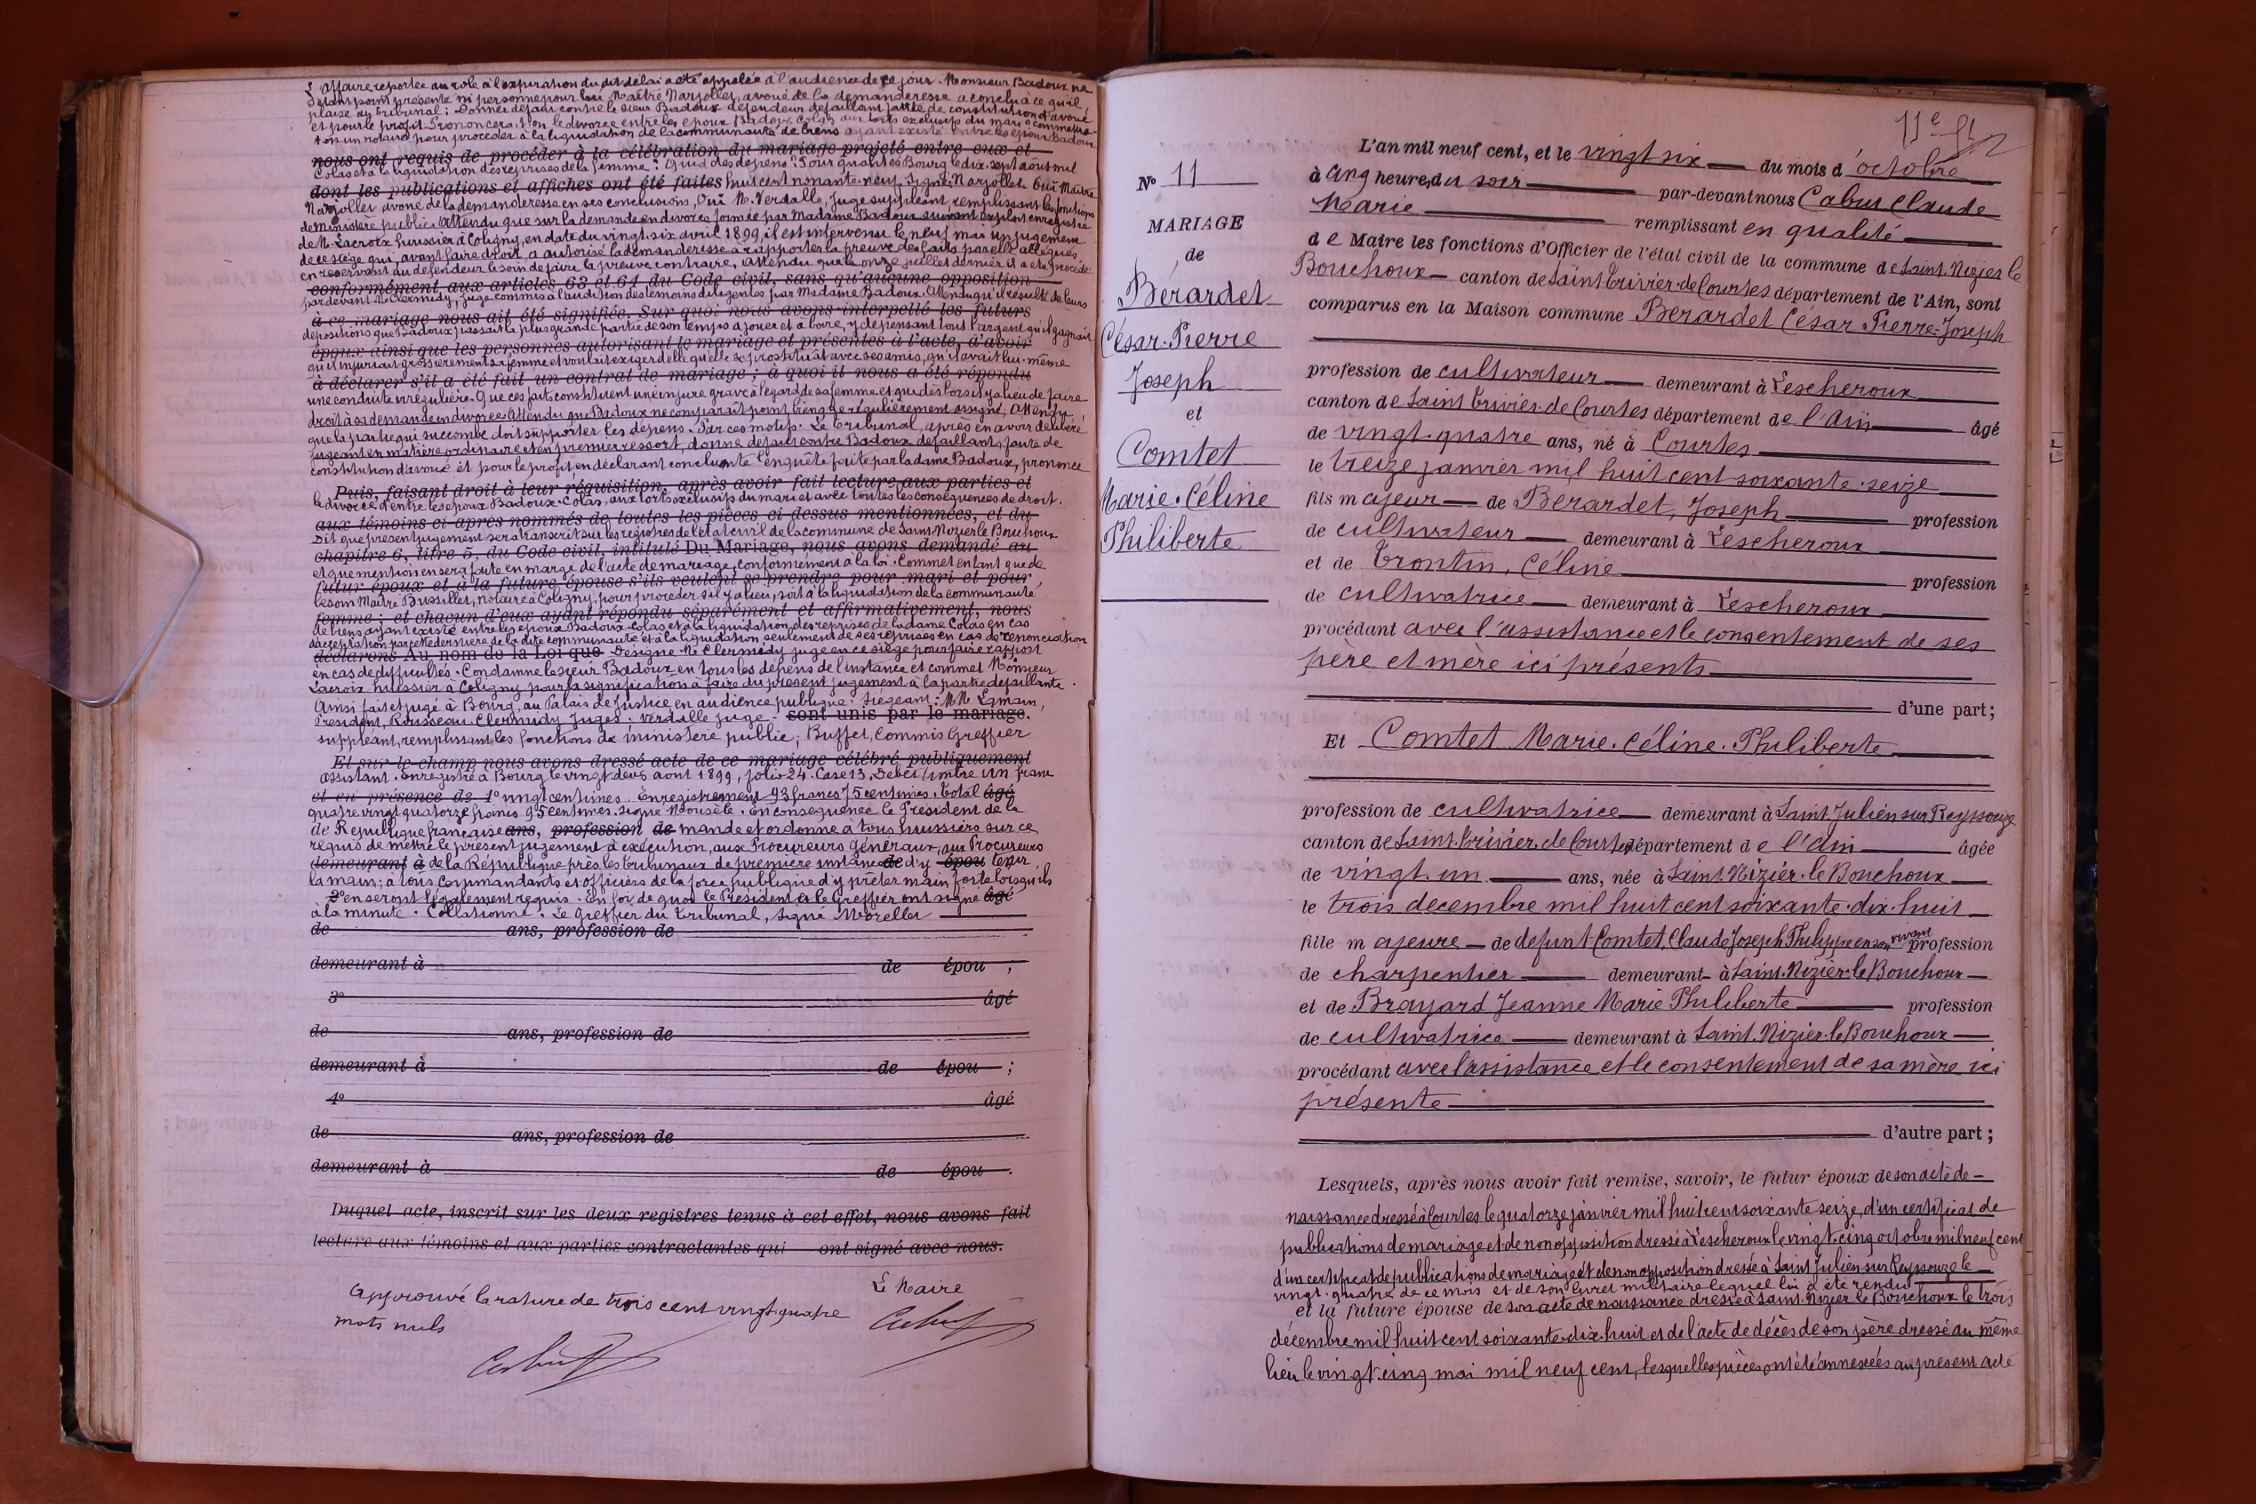 L'affaire reportée au role à l'expiration du dit délai a été appelée à l'audience de ce jour. Monsieur Badoux ne
s'étant point présenté ni personne pour lui Maître Narjollet, avoué de la demanderesse a conclu à ce qu'il
plaise au tribunal: Donner défaut contre le sieur Badoux défendeur défaillant faute de constitution d'avoué
et pour le profit Prononcera-t-on le divorce entre les époux Badoux Colas aux torts exclusifs du mari, commettra-
t-on un notaire pour procéder à la liquidation de la communauté de biens ayant existé entre les époux Badoux
nous ont requis de procéder à la célébration du mariage projeté entre eux et
Colas et à la liquidation des reprises de la femme? Quid des dépens? Pour qualités Bourg le dix-sept août mil
dont les publications et affiches ont été faites huit cent nonante-neuf, Signé Narjollet. Ouï Maître
Narjollet avoué de la demanderesse en ses conclusions, Ouï M. Verdalle, juge suppléant, remplissant les fonctions
de ministère public: Attendu que sur la demande en divorce formée par Madame Badoux suivant exploit enregistré
de M. Lacroix huissier à Coligny, en date du vingt-six avril 1899, il est intervenu le neuf mai un jugement
de ce siège qui, avant faire droit, a autorisé la demanderesse à rapporter la preuve des faits par elle allégués
en réservant au défendeur le soin de faire la preuve contraire, Attendu que le onze juillet dernier il a été procédé
conformément aux articles 63 et 64 du Code civil, sans qu'aucune opposition
par devant M. Clermidy, juge commis à l'audition des témoins diligentés par Madame Badoux. Attendu qu'il résulte de leurs
à ce mariage nous ait été signifiée. Sur quoi nous avons interpellé les futurs
dépositions que Badoux passait la plus grande partie de son temps à jouer et à boire, y dépensant tout l'argent qu'il gagnait
époux ainsi que les personnes autorisant le mariage et présentes à l'acte, d'avoir
qu'il injuriait grossièrement sa femme et voulait exiger d'elle qu'elle se prostituât avec ses amis, qu'il avait lui-même
à déclarer s'il a été fait un contrat de mariage; à quoi il nous a été répondu
une conduite irrégulière. Que ces faits constituent une injure grave à l'égard de sa femme et que dès lors il y a lieu de faire
droit à sa demande en divorce. Attendu que Badoux ne comparaît point bien que régulièrement assigné, Attendu
que la partie qui succombe doit supporter les dépens. Par ces motifs. Le Tribunal, après en avoir délibéré
jugeant en matière ordinaire et en premier ressort, donne défaut contre Badoux défaillant faute de
constitution d'avoué et pour le profit en déclarant concluante l'enquête faite par la dame Badoux, prononce
Puis, faisant droit à leur réquisition, après avoir fait lecture aux parties et
le divorce d'entre les époux Badoux-Colas, aux torts exclusifs du mari et avec toutes les conséquences de droit.
aux témoins ci-après nommés de toutes les pièces ci-dessus mentionnées, et du
Dit que présent jugement sera transcrit sur les registres de l'état civil de la commune de Saint Nizier le Bouchoux
chapitre 6, titre 5, du Code civil, intitulé Du Mariage, nous avons demandé au
et que mention en sera faite en marge de l'acte de mariage, conformément à la loi. Commet en tant que de
futur époux et à la future épouse s'ils veulent se prendre pour mari et pour
besoin Maître Busillet, notaire à Coligny, pour procéder s'il y a lieu, soit à la liquidation de la communauté
femme; et chacun d'eux ayant répondu séparément et affirmativement, nous
de biens ayant existé entre les époux Badoux-Colas et à la liquidation des reprises de la dame Colas en cas
d'acceptation par cette dernière de la dite communauté et à la liquidation seulement de ses reprises en cas de renonciation
déclarons Au nom de la Loi que Désigne M. Clermidy juge en ce siège pour faire rapport
en cas de difficultés. Condamne le sieur Badoux en tous les dépens de l'instance et commet Monsieur
Lacroix huissier à Coligny pour la signification à faire du présent jugement à la partie défaillante.
Ainsi fait et jugé à Bourg, au Palais de Justice en audience publique. Siégeant: MM.
Président, Rousseau, Clermidy Juges. Verdalle juge sont unis par le mariage.
suppléant, remplissant les fonctions de ministère public; Buffet, Commis Greffier
Et sur-le-champ nous avons dressé acte de ce mariage célébré publiquement
assistant. Enregistré à Bourg le vingt deux août 1899, folio 24. Case 13, Débet timbre un franc
et en présence de 1º vingt centimes. Enregistrement 93 francs 75 centimes. Total âgé
quatre vingt quatorze francs 95 centimes. Signé. En conséquence le Président de la
de République française ans, profession de mande et ordonne à tous huissiers sur ce
requis de mettre le présent jugement à exécution, aux Procureurs Généraux, aux Procureurs
demeurant à de la République près les tribunaux de première instance de d'y épou tenir
la main; à tous commandants et officiers de la force publique d'y prêter main forte lorsqu'ils
2º en seront légalement requis. En foi de quoi le Président et le Greffier ont signé âgé
à la minute. Collationné. Le Greffier du tribunal, Signé Morellet
de ans, profession de
demeurant à de épou ;
3º âgé
de ans, profession de
demeurant à de épou ;
4º âgé
de ans, profession de
demeurant à de épou .
Duquel acte, inscrit sur les deux registres tenus à cet effet, nous avons fait
lecture aux témoins et aux parties contractantes qui ont signé avec nous.
Approuvé la rature de trois cent vingt-quatre
mots nuls
Le Maire
11e
Nº 11
MARIAGE
de
Bérardet
César-Pierre
Joseph
et
Comtet
Marie-Céline
Philiberte
L'an mil neuf cent, et le vingt six du mois d'octobre
à cinq heures du soir par-devant nous Cabut Claude
Marie remplissant en qualité
de Maire les fonctions d'Officier de l'état civil de la commune de Saint-Nizier le
Bouchoux canton de Saint-Trivier-de-Courtes département de l'Ain, sont
comparus en la Maison commune Berardet César Pierre-Joseph
profession de cultivateur demeurant à Lescheroux
canton de Saint Trivier-de-Courtes département de l'Ain âgé
de vingt-quatre ans, né à Courtes
le treize janvier mil huit cent soixante-seize
fils majeur de Berardet, Joseph profession
de cultivateur demeurant à Lescheroux
et de Trontin, Céline profession
de cultivatrice demeurant à Lescheroux
procédant avec l'assistance et le consentement de ses
père et mère ici présents
d'une part;
Et Comtet Marie-Céline-Philiberte
profession de cultivatrice demeurant à Saint Julien sur Reyssouze
canton de Saint-Trivier-de-Courtes département de l'Ain âgée
de vingt-un ans, née à Saint-Nizier-le-Bouchoux
le trois decembre mil huit cent soixante-dix-huit
fille majeure de defunt Comtet, Claude Joseph Philippe en son vivant profession
de charpentier demeurant à Saint-Nizier-le Bouchoux
et de Brayard Jeanne Marie Philiberte profession
de cultivatrice demeurant à Saint-Nizier-le-Bouchoux
procédant avec l'assistance et le consentement de sa mère ici
présente
d'autre part;
Lesquels, après nous avoir fait remise, savoir, le futur époux de son acte de
naissance dressé à Courtes le quatorze janvier mil huit cent soixante seize, d'un certificat de
publications de mariage et de non opposition dressé à Lescheroux le vingt-cinq octobre mil neuf cent
d'un certificat de publications de mariage et de non opposition dressé à Saint Julien sur Reyssouze le
vingt-quatre de ce mois et de son livret militaire lequel lui a été rendu
et la future épouse de son acte de naissance dressé à Saint-Nizier le Bouchoux le trois
décembre mil huit cent soixante-dix-huit et de l'acte de décès de son père dressé au même
lieu le vingt-cinq mai mil neuf cent, lesquelles pièces ont été annexées au présent acte